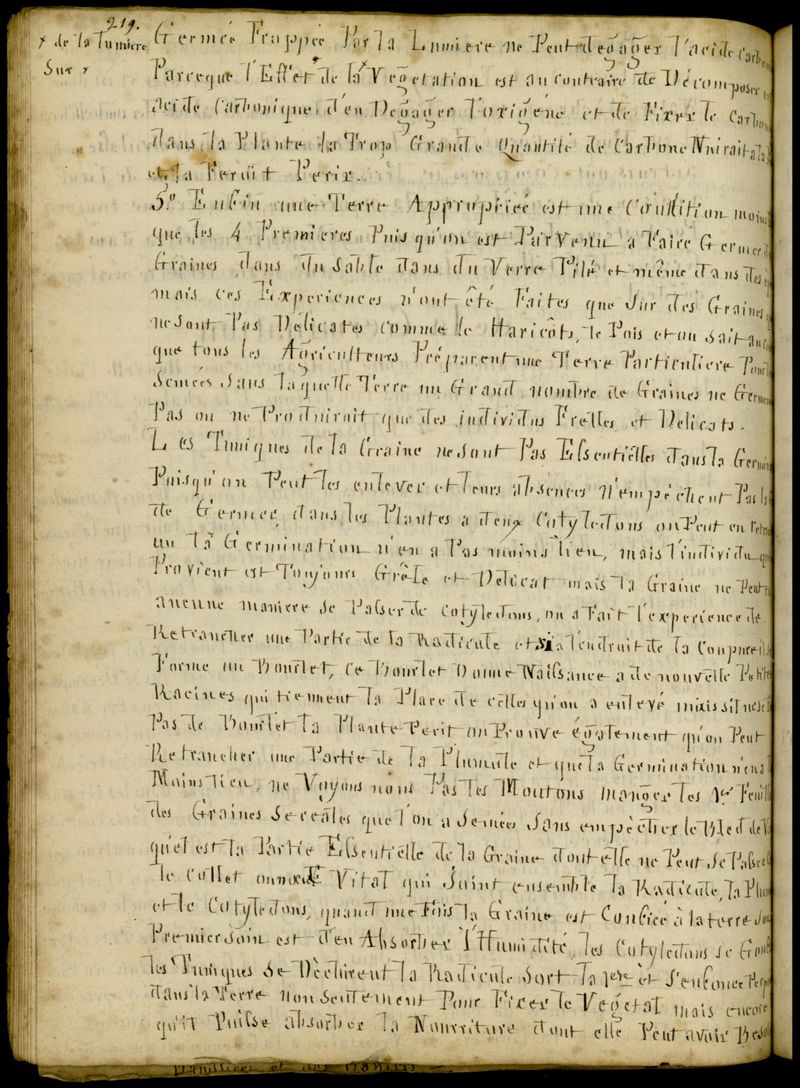 219.
+ de la Lumiere
Sur +
Germée Frappée Par la Lumiere ne Peut degager l'acide Carbon
Parceque l'Effet de la Vegetation est au contraire de Décomposer
acide Carbonique, d'en Degager l'oxigéne et de Fixer le Carbon
dans la Plante la Trop Grande Quantité de Carbone Nuirait à la
et la Ferait Perir.
5.º Enfin une Terre Appropriéé est une Condition moins
que les 4 Premieres Puis qu'on est Parvenu a Faire Germer d
Graines dans du sable dans du Verre Pilé et même dans des
mais ces Experiences n'ont été Faites que sur des Graines
ne sont Pas Delicates comme le Haricôts, le Pois et on sait
que tous les Agriculteurs Préparent une Terre Particuliere Pour
Semées Sans laquelle Terre un Grand nombre de Graines ne Germ
Pas ou ne Produirait que des individus Frelles et Delicats.
Les Tuniques de la Graine ne sont Pas Essentiélles dans la Germin
Puisqu'on Peut les enlever et leurs absences N'empéchent Pas la
de Germer, dans les Plantes a deux Cotyledons on Peut en retran
un la Germination n'en a Pas moins lieu, mais l'individu qui
Provient est Toujours Grêle et Delicat mais la Graine ne Peut
aucune maniere se Passer de Cotyledons, on a Fait l'experience de
Retrancher une Partie de la Radicule et si a l'endroit de la Coupure il
Forme un Bourlet, ce Bourlet Donne Naissance a de nouvelle Petites
Racines qui tiennent la Place de celles qu'on a enlevé mais s'il ne se f
Pas de Bourlet la Plante Perit on Prouve également qu'on Peut
Retrancher une Partie de la Plumule et que la Germination n'en a
Moins lieu, ne Voyons nous Pas les Moutons manger les 1.er Feuill
des Graines Sereales que l'on a semées Sans empècher le Bled de
quel est la Partie Essentielle de la Graine dont elle ne Peut se Passer
le Collet ou nœud Vital qui Joint ensemble la Radicule, la Plum
et le Cotyledons, quand une Fois la Graine est Confiée à la terre son
Premier soin est d'en Absorber l'Humidité, les Cotyledons se Gonf
les Tuniques Se Déchirent la Radicule Sort la 1ere et s'enfonce Perp
dans la Terre non seulement Pour Fixer le Vegetal mais encore
qu'il Puisse absorber la Nourriture dont elle Peut avoir Beso